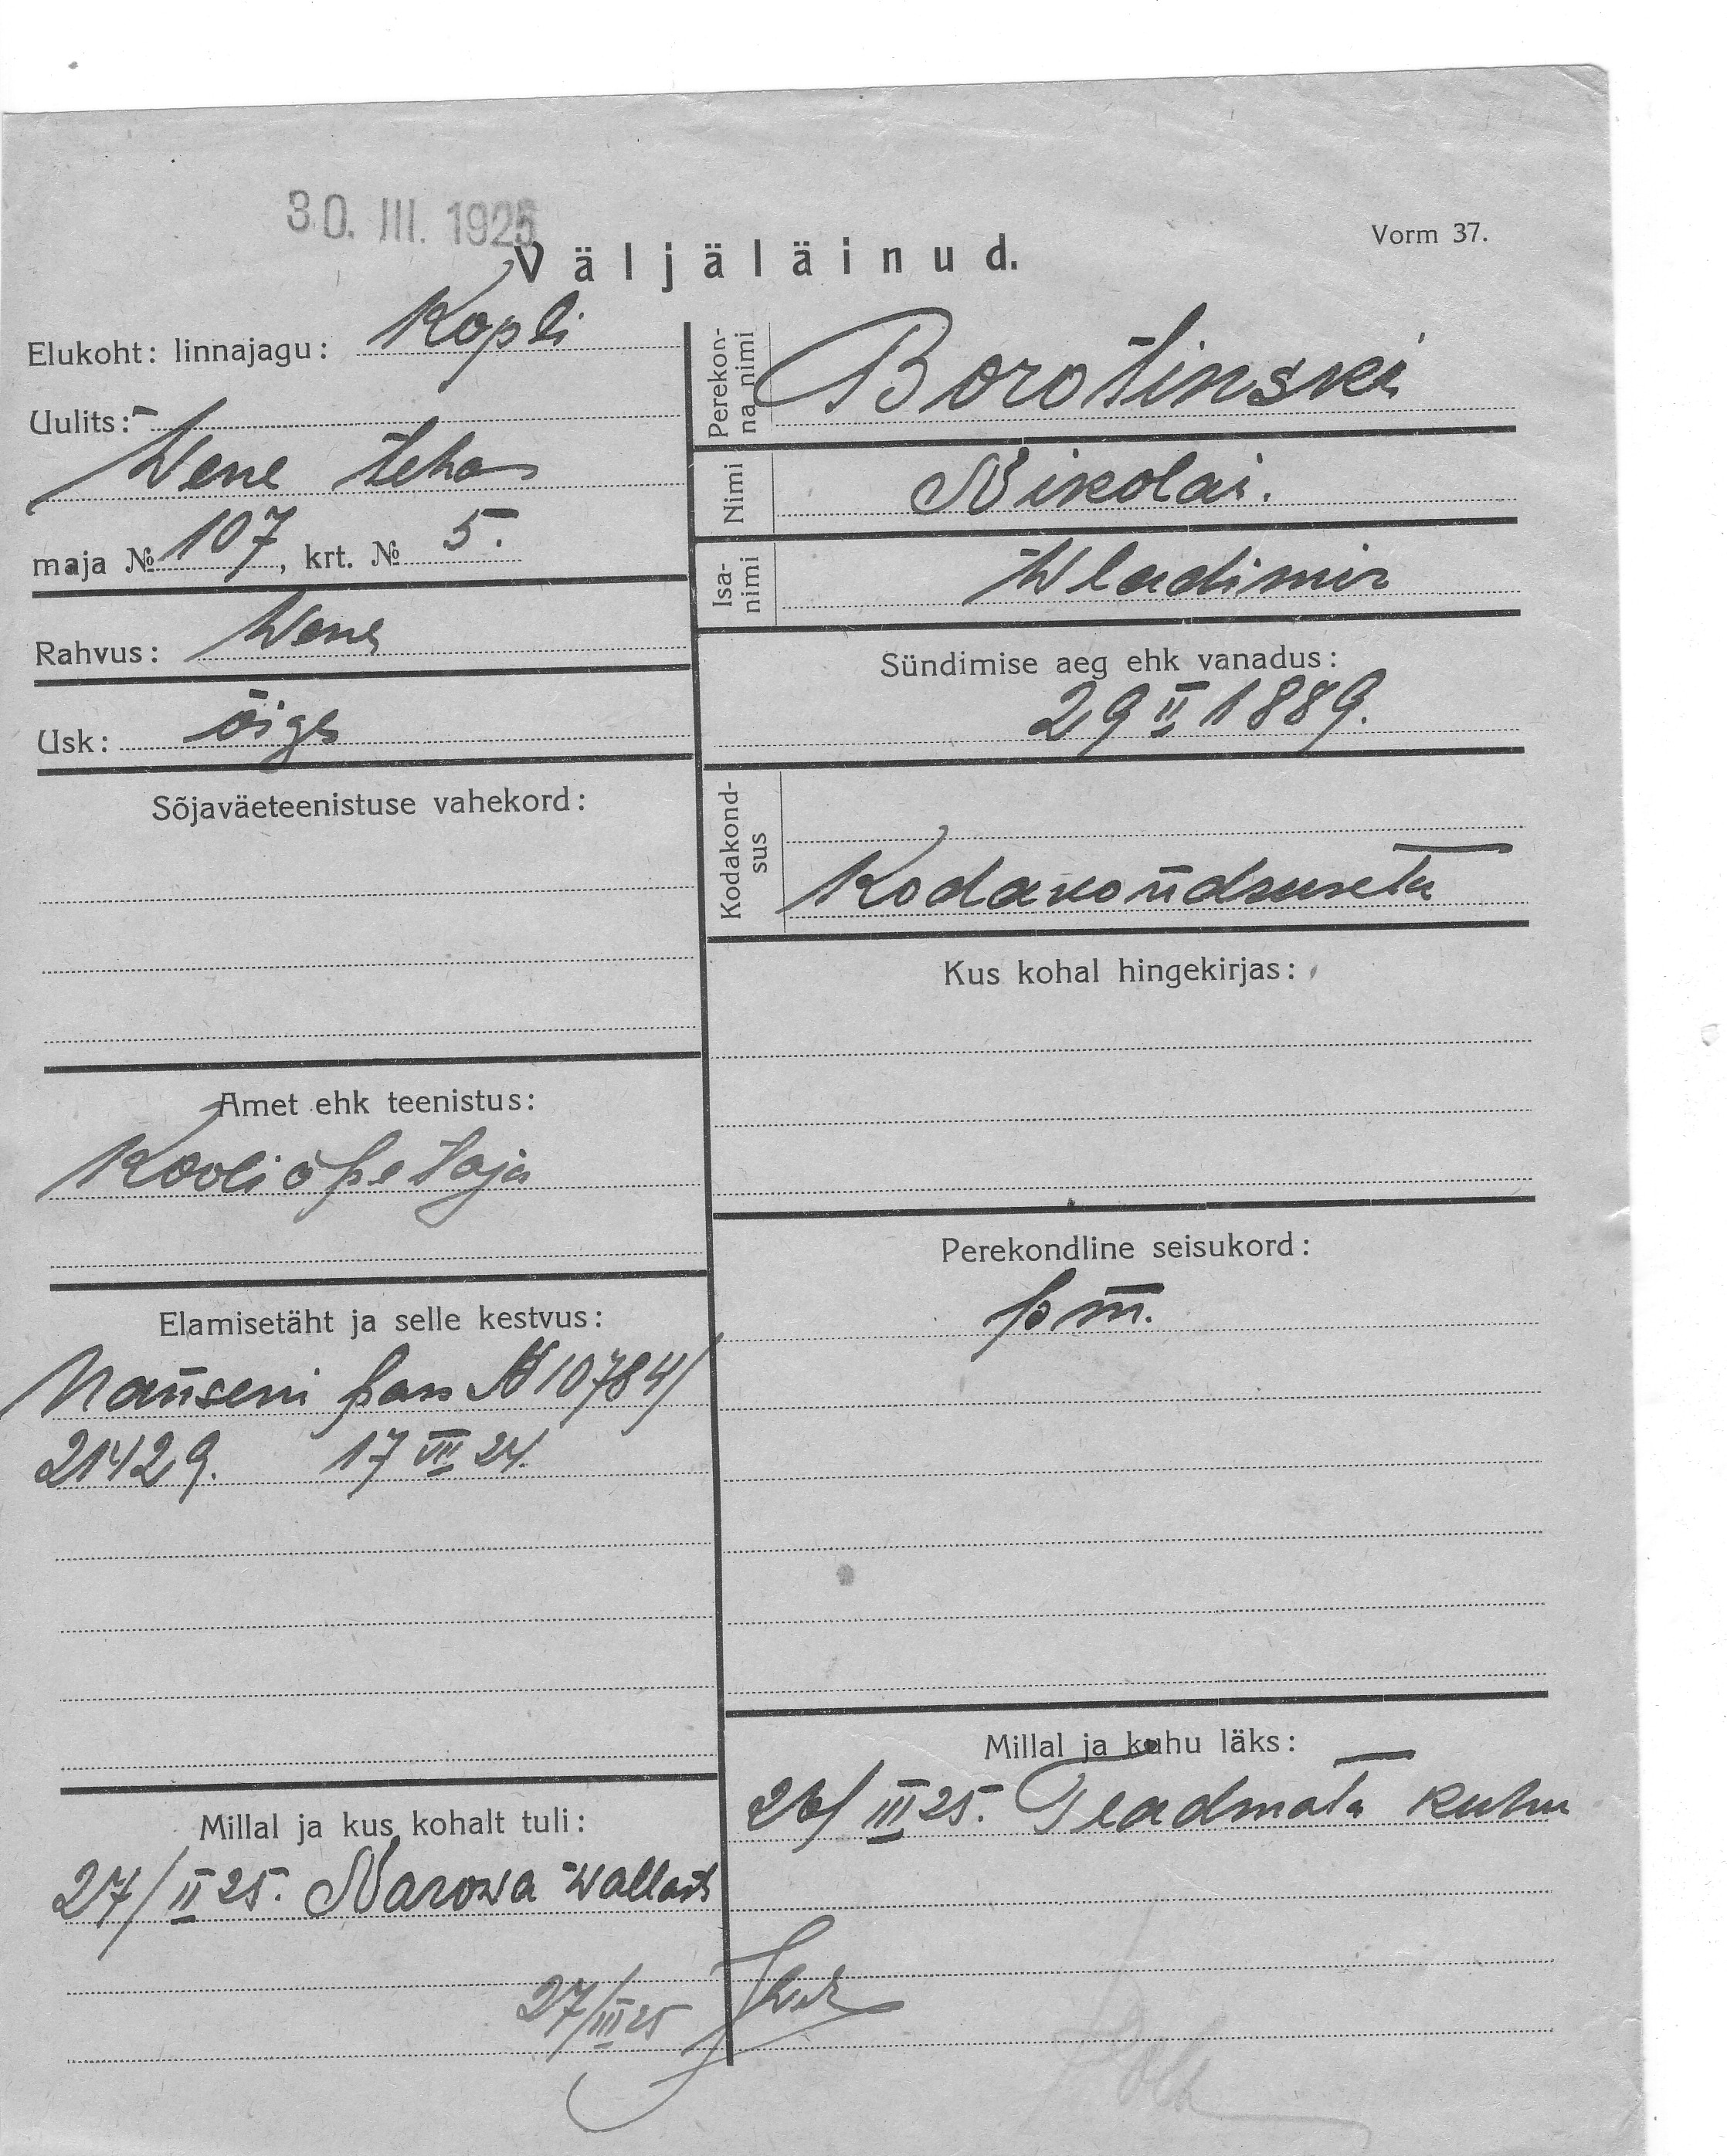 30. III. 1925
Väljäläinud.
Vorm 37.
Elukoht: linnajagu: Kopli
Uulits:
Wene tehas
maja № 107, krt. № 5.
Rahvus: Wene
Usk: õige
Sõjaväeteenistuse vahekord:
Amet ehk teenistus:
Kooliõpetaja
Elamisetäht ja selle kestvus:
Nanseni pass № 10784/
21429. 17 VII 24.
Millal ja kus kohalt tuli:
27/II 25. Narowa wallast
27/III 25
Perekon-
na nimi
Borotinski
Nimi
Nikolai.
Isa-
nimi
Wladimir
Sündimise aeg ehk vanadus:
29 II 1889.
Kodakond-
sus
Kodakondsuseta
Kus kohal hingekirjas:
Perekondline seisukord:
pm.
Millal ja kuhu läks:
26/III 25. Teadmata kuhu